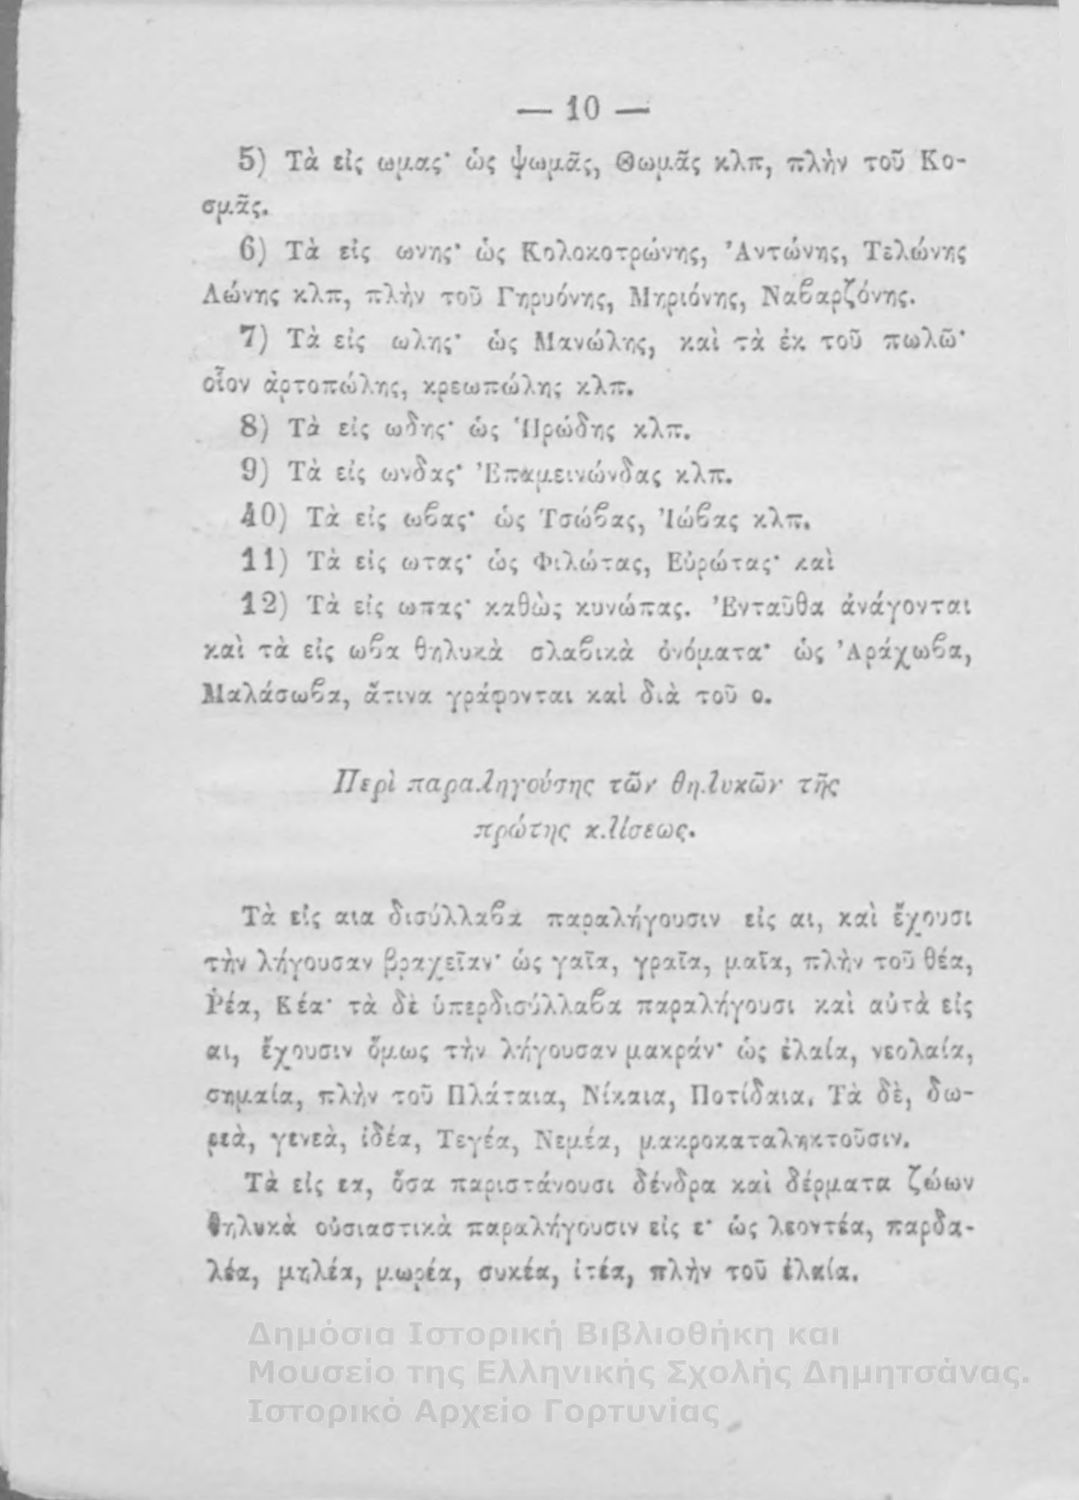 — 10 —
5) Τὰ εἰς ωμας· ὡς ψωμᾶς, Θωμᾶς κλπ, πλὴν τοῦ Κο-
σμᾶς.
6) Τὰ εἰς ωνης· ὡς Κολοκοτρώνης, Ἀντώνης, Τελώνης
Λώνης κλπ, πλὴν τοῦ Γηρυόνης, Μηριόνης, Ναβαρζόνης.
7) Τὰ εἰς ωλης· ὡς Μανώλης, καὶ τὰ ἐκ τοῦ πωλῶ·
οἷον ἀρτοπώλης, κρεωπώλης κλπ.
8) Τὰ εἰς ωδης· ὡς Ἡρώδης κλπ.
9) Τὰ εἰς ωνδας· Ἐπαμεινώνδας κλπ.
10) Τὰ εἰς ωβας· ὡς Τσώβας, Ἰώβας κλπ.
11) Τὰ εἰς ωτας· ὡς Φιλώτας, Εὐρώτας· καὶ
12) Τὰ εἰς ωπας· καθὼς κυνώπας. Ἐνταῦθα ἀνάγονται
καὶ τὰ εἰς ωβα θηλυκὰ σλαβικὰ ὀνόματα· ὡς Ἀράχωβα,
Μαλάσωβα, ἅτινα γράφονται καὶ διὰ τοῦ ο.
Περὶ παραληγούσης τῶν θηλυκῶν τῆς
πρώτης κλίσεως.
Τὰ εἰς αια δισύλλαβα παραλήγουσιν εἰς αι, καὶ ἔχουσι
τὴν λήγουσαν βραχεῖαν· ὡς γαῖα, γραῖα, μαῖα, πλὴν τοῦ θέα,
Ῥέα, Κέα· τὰ δὲ ὑπερδισύλλαβα παραλήγουσι καὶ αὐτὰ εἰς
αι, ἔχουσιν ὅμως τὴν λήγουσαν μακράν· ὡς ἐλαία, νεολαία,
σημαία, πλὴν τοῦ Πλάταια, Νίκαια, Ποτίδαια. Τὰ δὲ, δω-
ρεὰ, γενεὰ, ἰδέα, Τεγέα, Νεμέα, μακροκαταληκτοῦσιν.
Τὰ εἰς εα, ὅσα παριστάνουσι δένδρα καὶ δέρματα ζώων
θηλυκὰ οὐσιαστικὰ παραλήγουσιν εἰς ε· ὡς λεοντέα, παρδα-
λέα, μηλέα, μωρέα, συκέα, ἰτέα, πλὴν τοῦ ἐλαία.
Δημόσια Ιστορική Βιβλιοθήκη και
Μουσείο της Ελληνικής Σχολής Δημητσάνας.
Ιστορικό Αρχείο Γορτυνίας